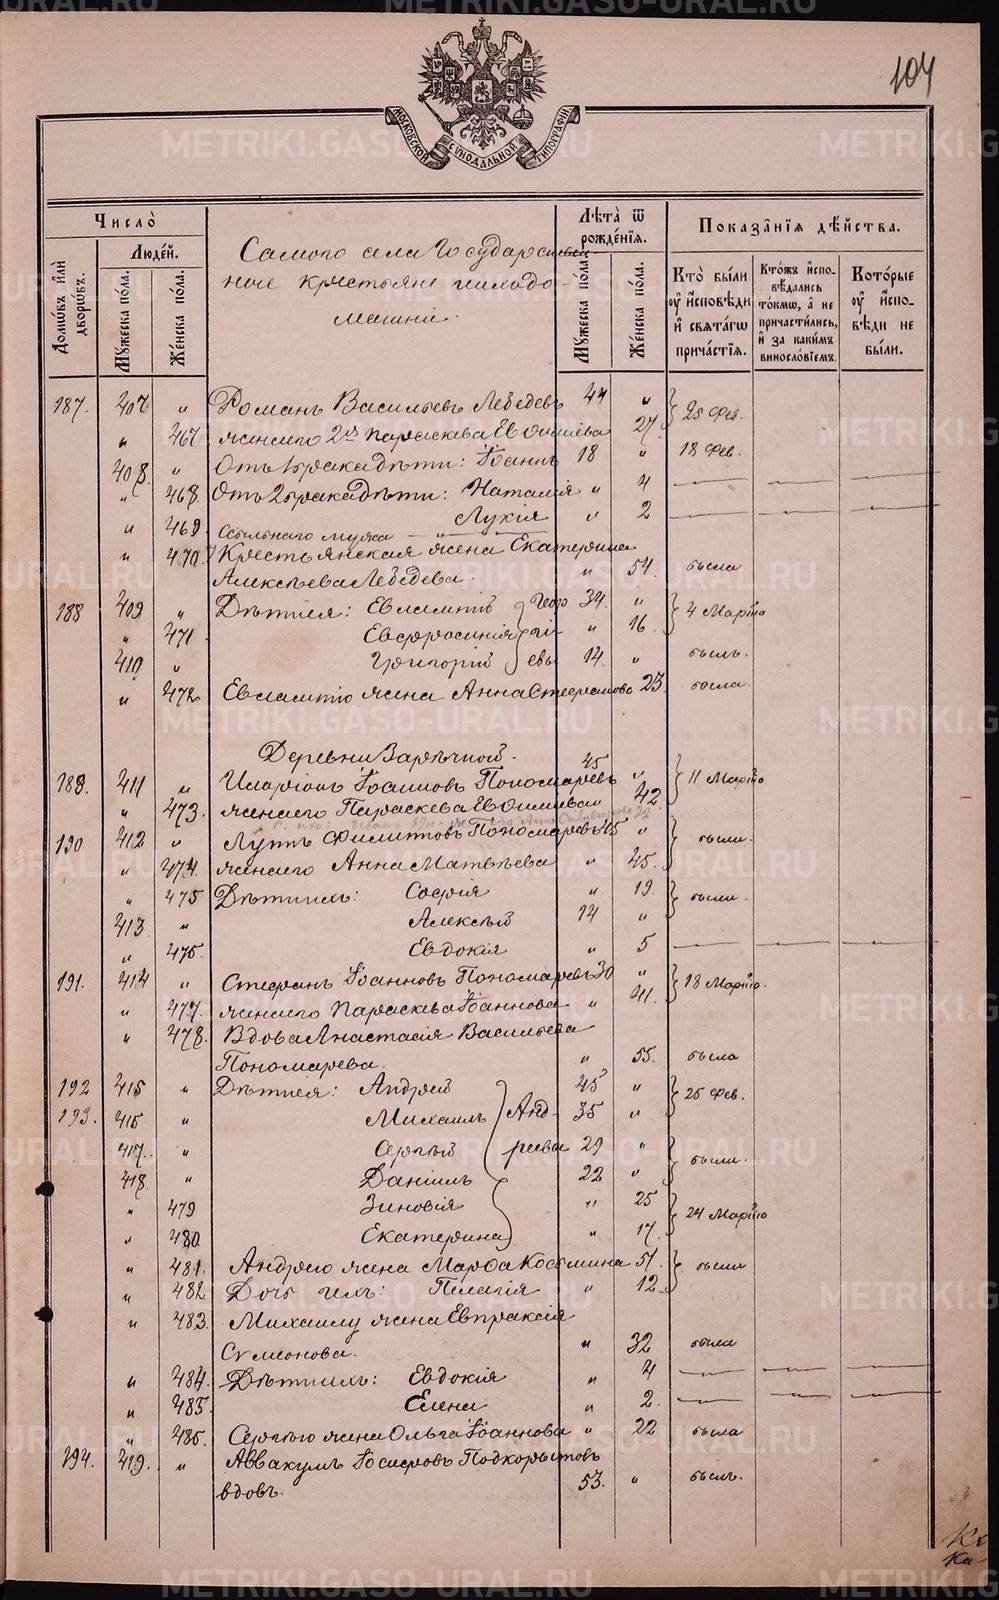 104
МОСКОВСКОЙ СѴНОДАЛЬНОЙ ТИПОГРАФІИ
METRIKI.GASO-URAL.RU
Число̀
Домѡ́въ и҆лѝ дворѡ́въ.
Людє́й.
Мꙋ́жеска по́ла.
Же́нска по́ла.
Самого села Государствен
ные крестьяне и ихъ до
машніе.
Лѣ́та ѿ рожде́нїѧ.
Мꙋ́жеска по́ла.
Же́нска по́ла.
Показа̑нїѧ дѣ́йства.
Кто̀ бы́ли оу҆ и҆сповѣ́ди и҆ свѧта́гѡ прича́стїѧ.
Кто́жъ и҆спо-вѣ́дались то́кмѡ, а҆ не причасти́лись, и҆ за каки́мъ винослѡ́вїемъ.
Кото́рые оу҆ и҆спо-вѣ́ди не бы́ли.
187. 407 " Романъ Васильевъ Лебедевъ 44 " 25 Фев.
" 467 жена его 2я Параскева Евѳиміева 27
408 " Отъ 1 брака дѣти: Іоаннъ 18 " 18 Фев.
" 468. Отъ 2 брака дѣти: Наталія " 4 — — —
" 469 Лукія " 2 — — —
Ссыльнаго мужа
" 470 Крестьянская жена Екатерина
Алексѣева Лебедева. " 54. была
188 409 " Дѣти ея: Евлампій Геор 34. " 4 Марта
" 471 Евфросинія гі " 16.
410 " Григорій евы 14. " былъ.
" 472. Евлампію жена Анна Стефанова 23 была.
Деревни Зарѣчной.
189. 411 " Иларіонъ Іоанновъ Пономаревъ 45 " 11 Марта
" 473. жена его Параскева Евѳиміева 42.
190 412 " Луппъ Филиповъ Пономаревъ 45 " были.
" 474. жена его Анна Матвѣева " 45.
" 475 Дѣти ихъ: Софія " 19. были.
413 " Алексѣй 14 "
" 475. Евдокія " 5 — — —
191. 414 " Стефанъ Іоанновъ Пономаревъ 30 " 18 Марта.
" 477. жена его Параскева Іоаннова " 41.
" 478. Вдова Анастасія Васильева
Пономарева. " 55. была
192 415 " Дѣти ея: Андрей 45 " 25 Фев.
193. 415 " Михаилъ Анд 35 "
417. " Сергѣй реевы 29 " были.
418. " Даніилъ 22 "
" 479 Зиновія " 25 24 Марта
" 480 Екатерина " 17.
" 481. Андрею жена Марѳа Косьмина 51. были
" 482. Дочь ихъ: Пелагія " 12.
" 483. Михаилу жена Евпраксія
Сѵмеонова. " 32 была
" 484. Дѣти ихъ: Евдокія " 4 — — —
" 485. Елена " 2. — — —
" 485. Сергѣю жена Ольга Іоаннова " 22 была
194. 419. " Аввакумъ Іосифовъ Подкорытовъ
вдовъ. 53. " былъ.